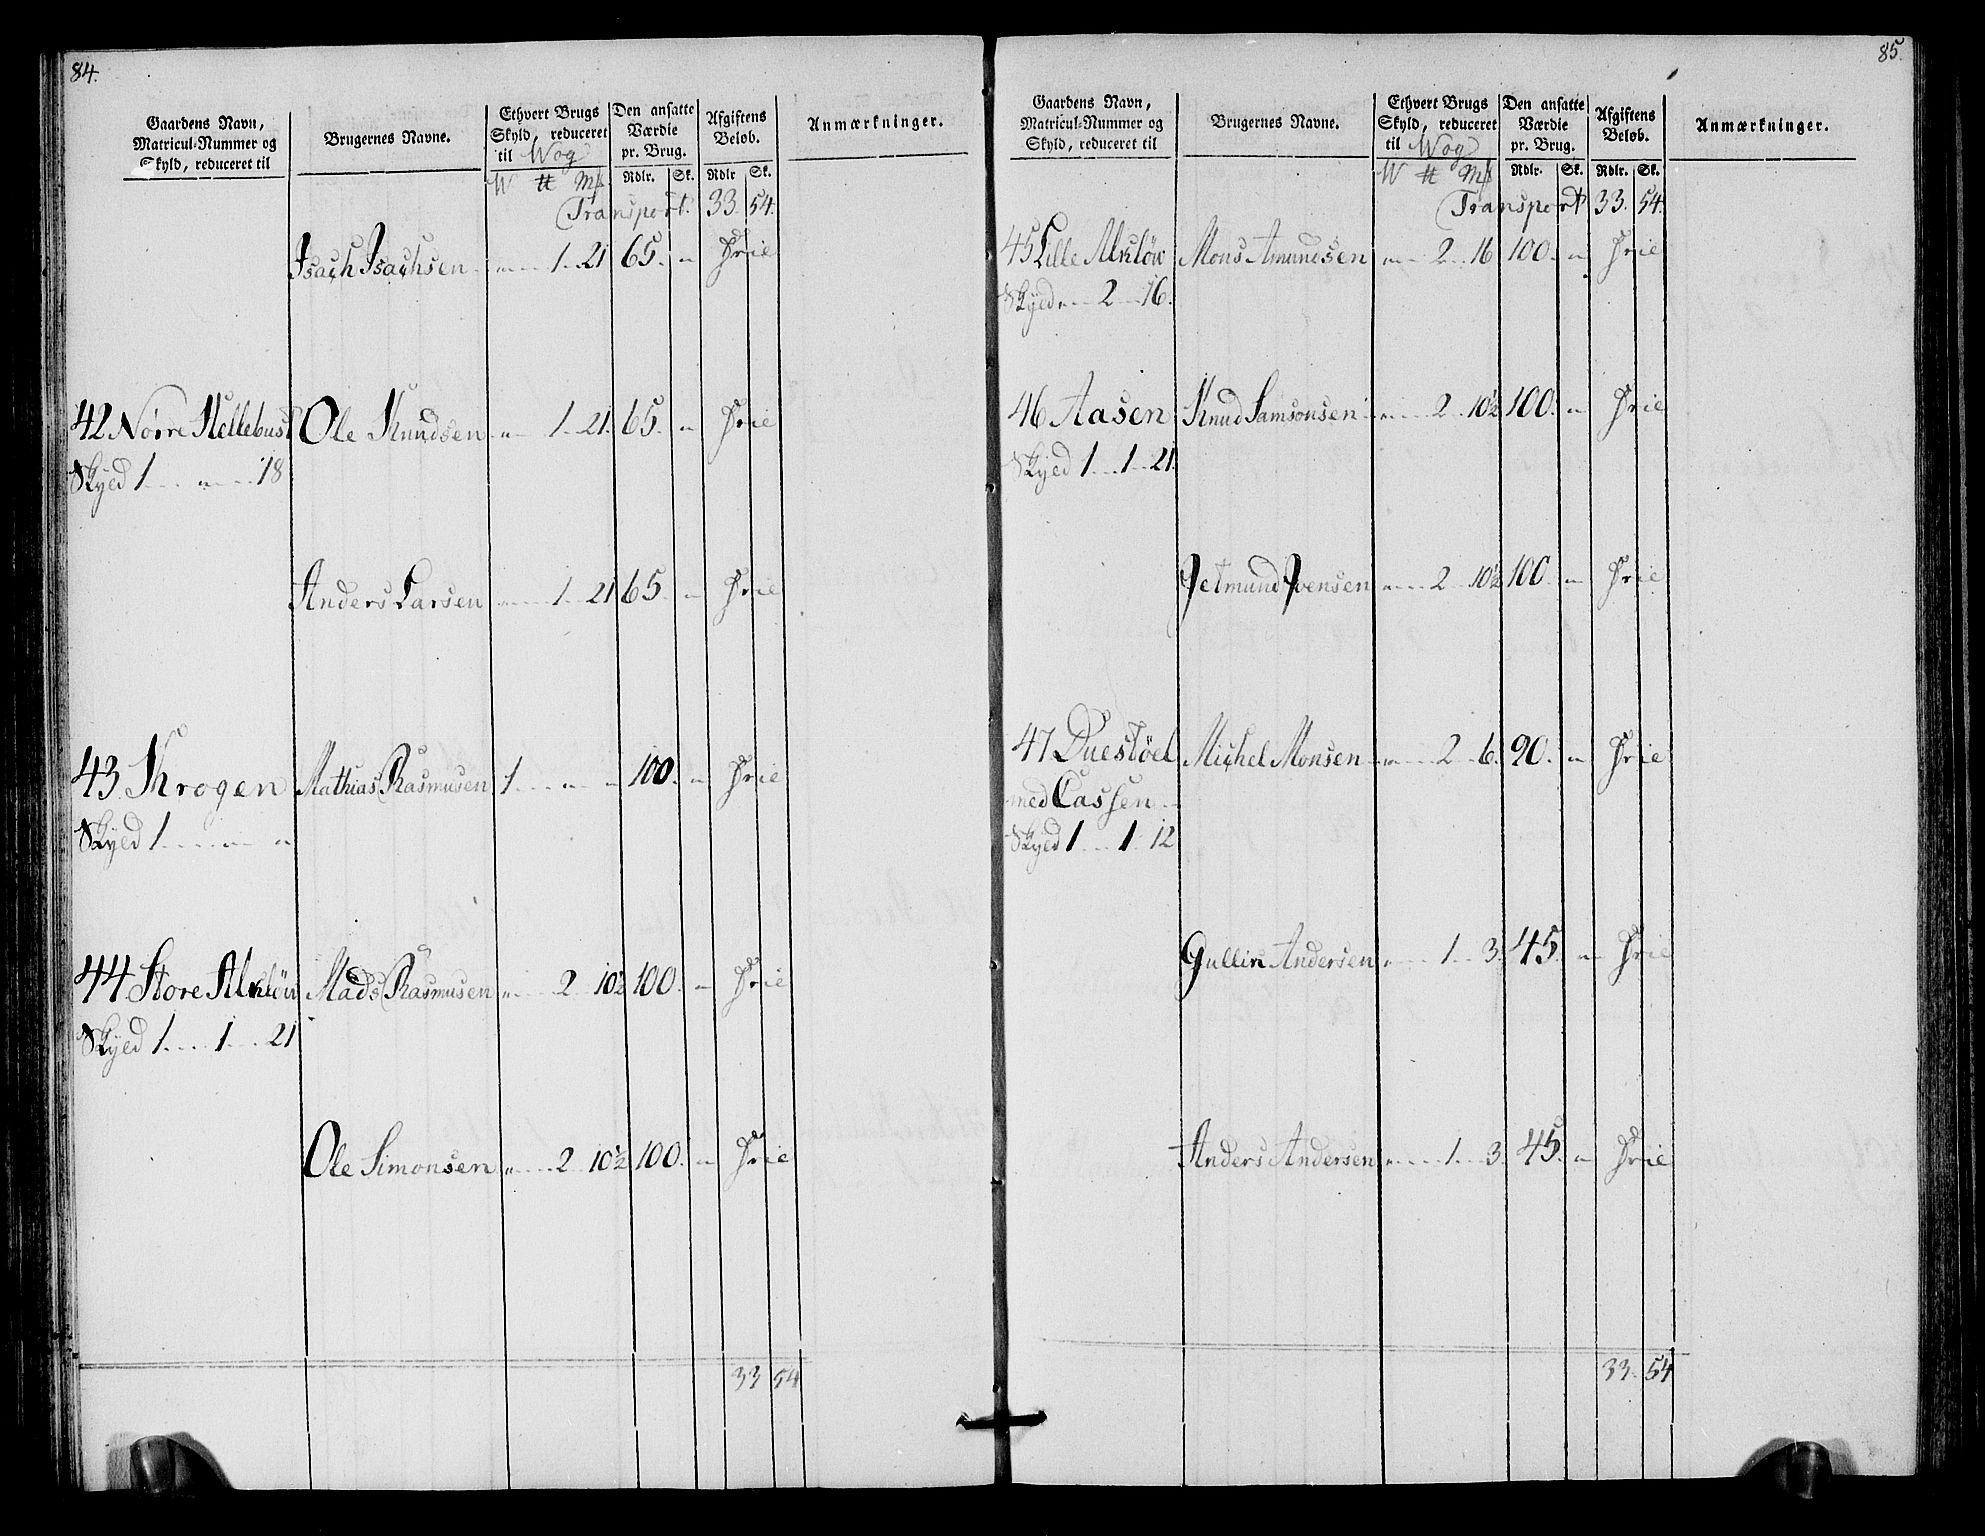 84.
Gaardens Navn, Matricul-Nummer og Skyld, reduceret til
Brugernes Navne.
Ethvert Brugs Skyld, reduceret til Wog
Den ansatte Værdie pr. Brug.
Afgiftens Beløb.
Anmærkninger.
W ℔ Mß Rdlr. Sk. Rdlr Sk.
Transport. 33. 54.
Isach Isachsen " 1 21 65. " Frie
42 Nörre Hellebust Ole Knudsen " 1 21. 65. " Frie
Skyld 1 " 18
Anders Larsen " 1 21 65. " Frie
43. Krogen Mathias Rasmusen 1 " " 100. " Frie
Skyld 1 " "
44. Store Alslöv Mads Rasmusen " 2 10½ 100. " Frie
Skyld 1 1 21
Ole Simonsen " 2 10½ 100. " Frie
33 54
85.
Gaardens Navn, Matricul-Nummer og Skyld, reduceret til
Brugernes Navne.
Ethvert Brugs Skyld, reduceret til Wog
Den ansatte Værdie pr. Brug.
Afgiftens Beløb.
Anmærkninger.
W ℔ Mß Rdlr. Sk. Rdlr. Sk.
Transport 33. 54.
45 Lille Alslöv Mons Amundsen " 2 16 100. " Frie
Skyld " 2 16.
46 Aasen Knud Samsonsen " 2 10½ 100. " Frie
Skyld 1 1 21.
Jetmund Joensen " 2 10½ 100. " Frie
47 Duestöel Michel Monsen " 2 6. 90. " Frie
med Cassen
Skyld 1 1 12
Gullir Andersen " 1 3. 45. " Frie
Anders Andersen " 1 3. 45. " Frie
33. 54